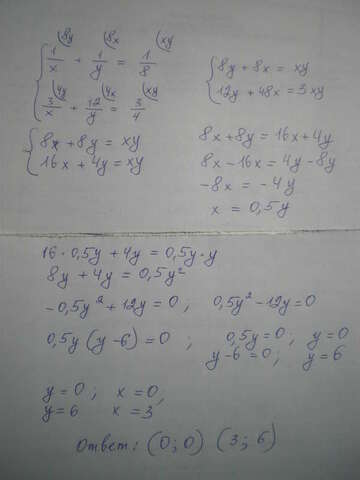 (8y (8x (xy
1/x + 1/y = 1/8
(4y (4x (xy
3/x + 12/y = 3/4
8y + 8x = xy
12y + 48x = 3xy
8x + 8y = xy
16x + 4y = xy
8x + 8y = 16x + 4y
8x - 16x = 4y - 8y
-8x = -4y
x = 0,5y
16 · 0,5y + 4y = 0,5y · y
8y + 4y = 0,5y²
-0,5y² + 12y = 0 ; 0,5y² - 12y = 0
0,5y (y - 6) = 0 ; 0,5y = 0 ; y = 0
y - 6 = 0 ; y = 6
y = 0 ; x = 0 ;
y = 6 x = 3
Ответ: (0; 0) (3; 6)